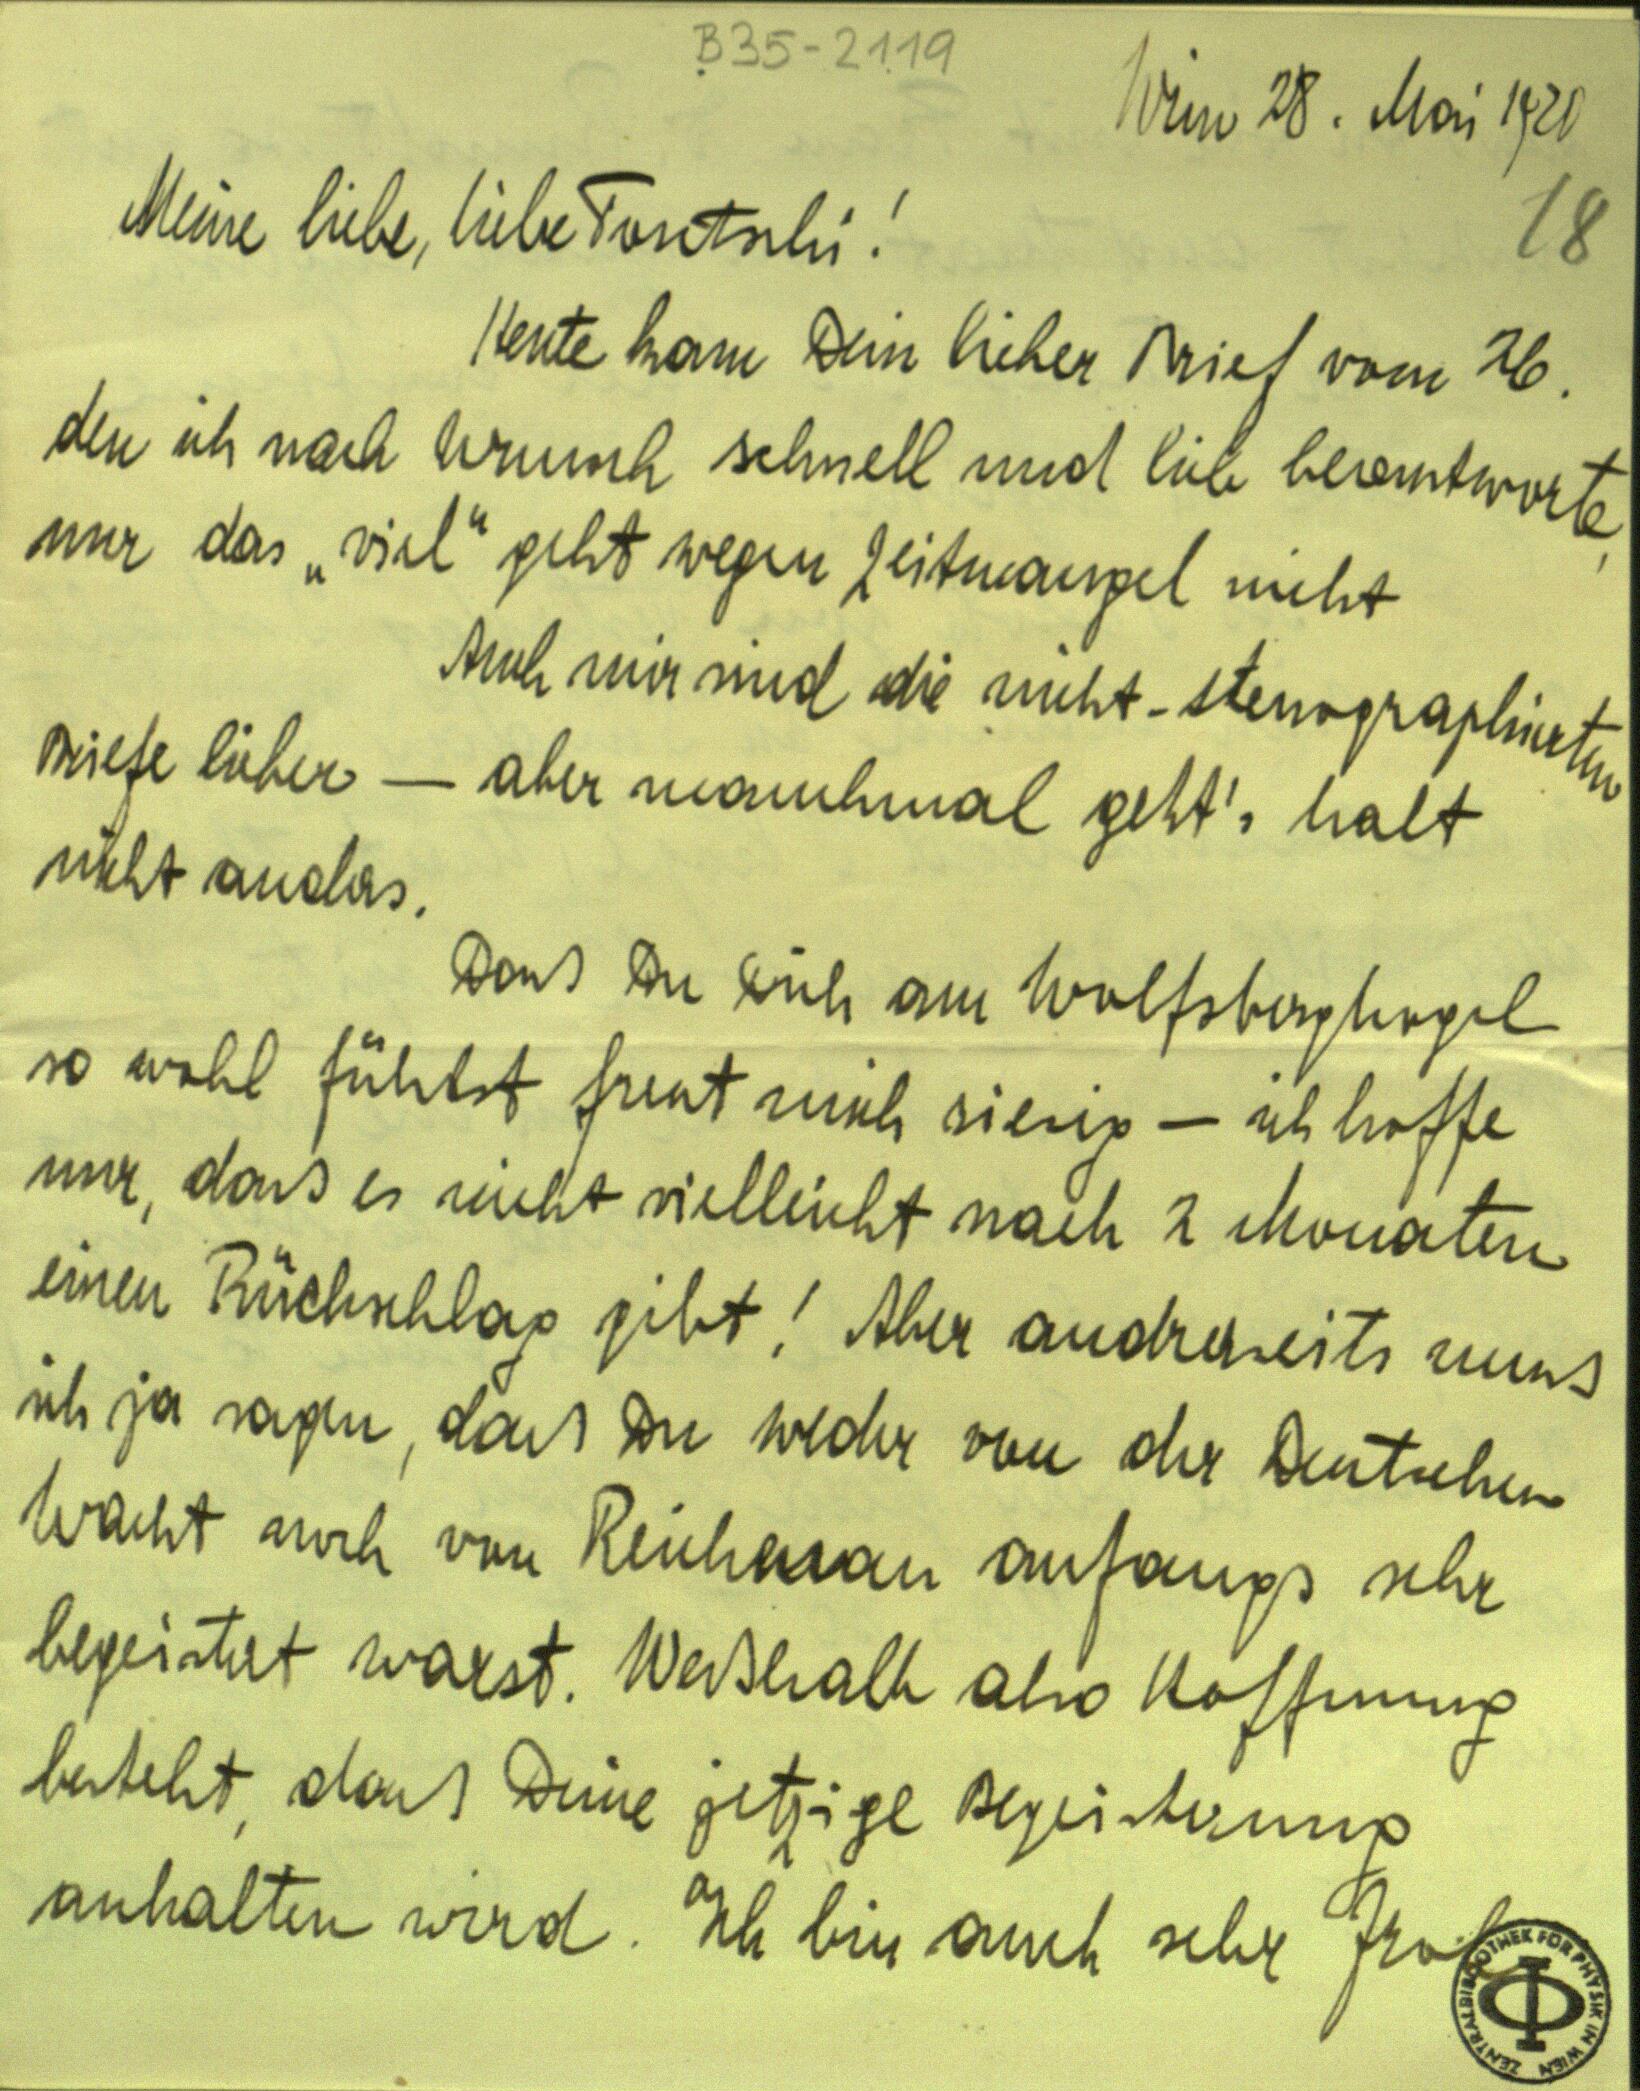 B35-2119
Wien 28. Mai 1920
18
Meine liebe, liebe Tosetschi!
Heute kam Dein lieber Brief vom 26.
den ich nach Wunsch schnell und lieb beantworte,
nur das „viel“ geht wegen Zeitmangel nicht
Auch mir sind die nicht-stenographierten
Briefe lieber — aber manchmal geht's halt
nicht anders.
Dass Du Dich am Wolfsbergkogel
so wohl fühlst freut mich riesig — ich hoffe
nur, dass es nicht vielleicht nach 2 Monaten
einen Rückschlag gibt! Aber andrerseits muss
ich ja sagen, dass Du weder von der Deutschen
Wacht noch von Reichenau anfangs sehr
begeistert warst. Weßhalb also Hoffnung
besteht, dass Deine jetzige Begeisterung
anhalten wird. Ich bin auch sehr froh
ZENTRALBIBLIOTHEK FÜR PHYSIK IN WIEN